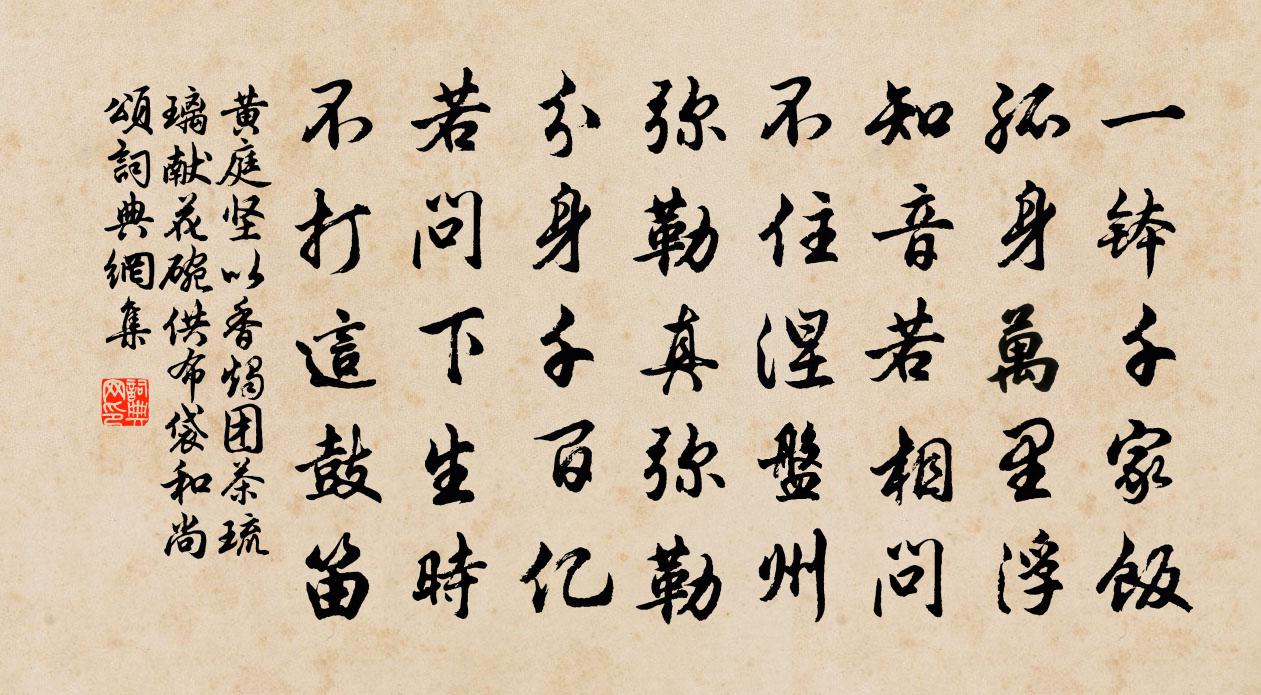 一钵千家飯
孤身萬里浮
知音若相問
不住涅盤州
弥勒真弥勒
分身千百亿
若問下生時
不打這鼓笛
黄庭坚以香烛团茶琉
璃献花碗供布袋和尚
頌詞典網集
詞典网印